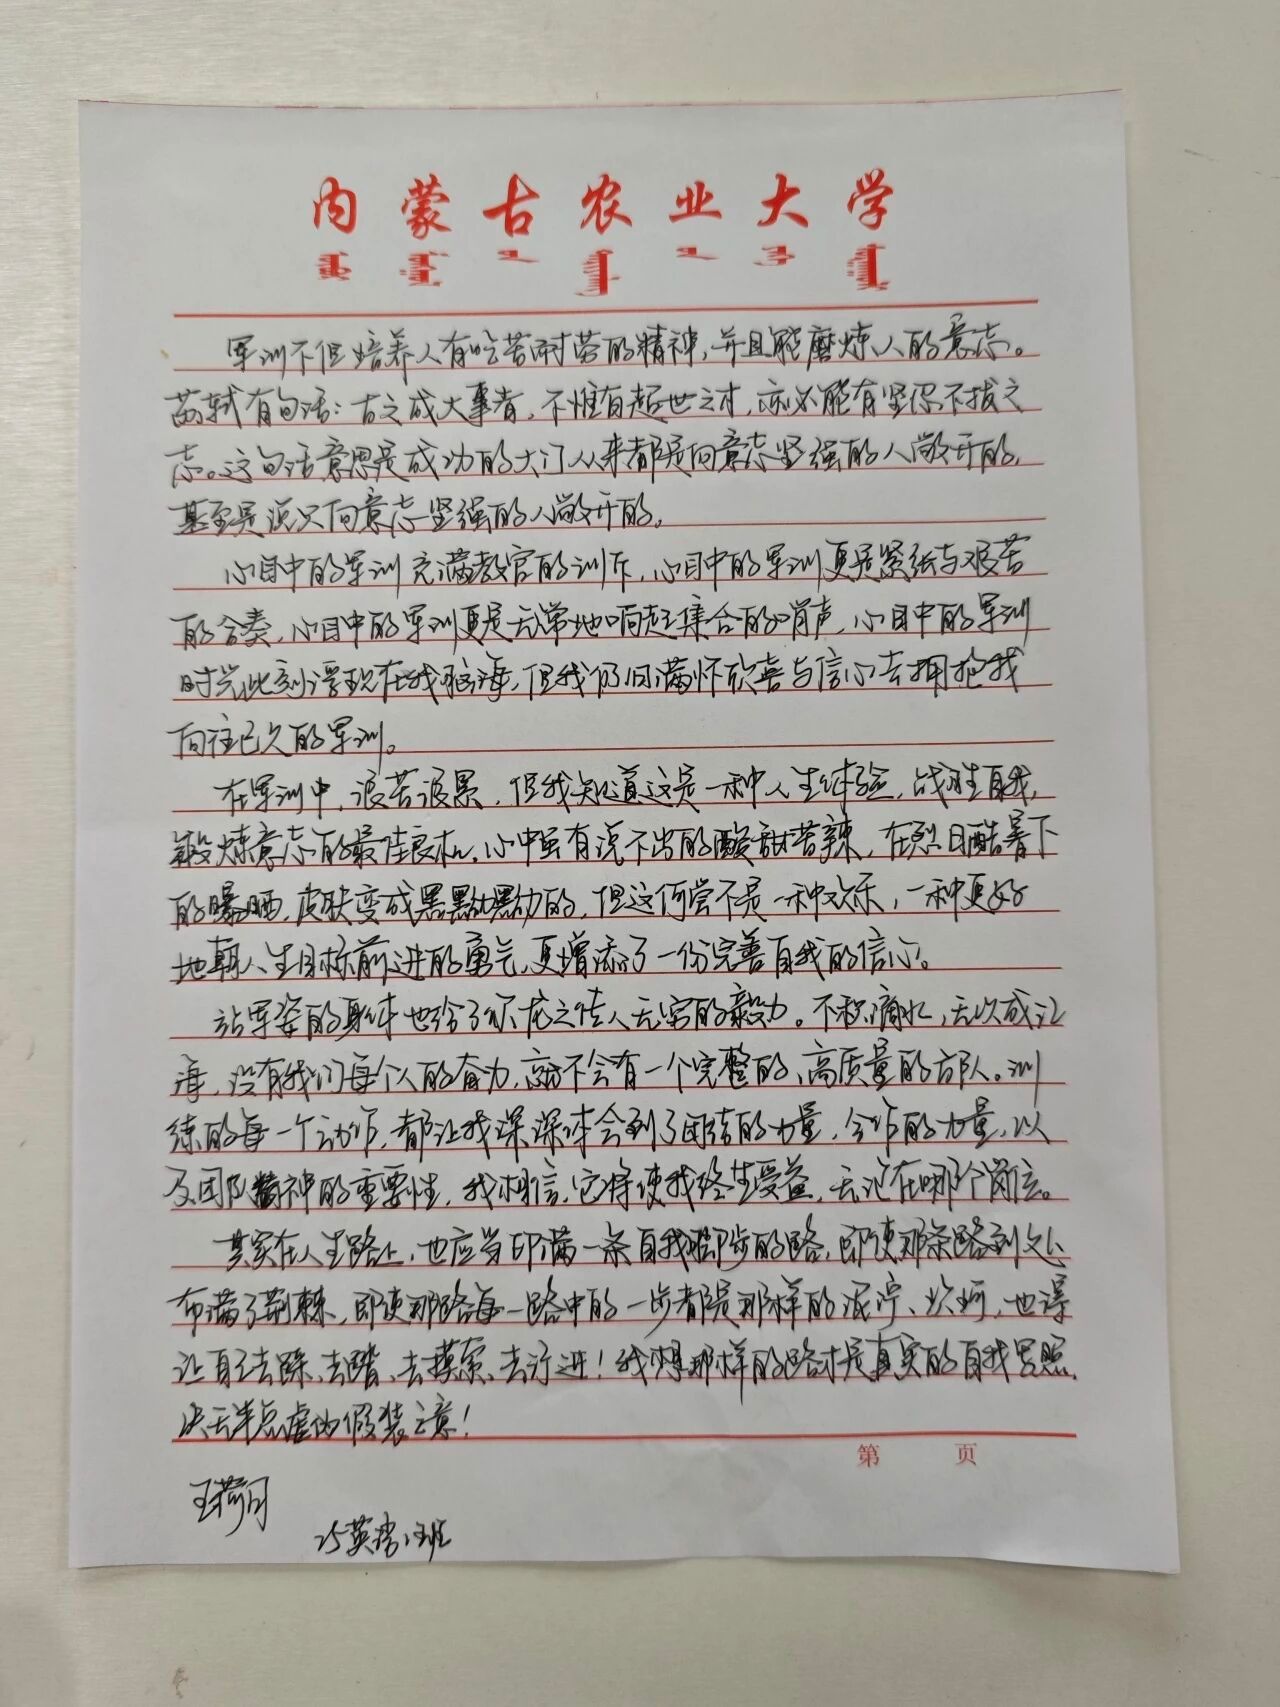 内蒙古农业大学
军训不但培养人有吃苦耐劳的精神，并且能磨炼人的意志。
苏轼有句话：古之成大事者，不惟有超世之才，亦必能有坚忍不拔之
志。这句话意思是成功的大门从来都是向意志坚强的人敞开的，
甚至是说只向意志坚强的人敞开的。
心目中的军训充满教官的训斥，心目中的军训更是紧张与艰苦
的合奏，心目中的军训更是无常地响起集合的哨声，心目中的军训
时光此刻浮现在我脑海，但我仍旧满怀欣喜与信心去拥抱我
向往已久的军训。
在军训中，很苦很累，但我知道这是一种人生体验，战胜自我，
锻炼意志的最佳良机。心中虽有说不出的酸甜苦辣，在烈日酷暑下
的曝晒，皮肤变成黑黝黝的，但这何尝不是一种欢乐，一种更好
地朝人生目标前进的勇气，更增添了一份完善自我的信心。
站军姿的身体也给了你龙之传人无穷的毅力。不积滴水，无以成江
海，没有我们每个人的奋力，就不会有一个完整的、高质量的方队。训
练的每一个动作，都让我深深体会到了团结的力量，合作的力量，以
及团队精神的重要性，我相信，它将使我终生受益，无论在哪个岗位。
其实在人生路上，也应当印满一条自我脚步的路，即使那条路到处
布满了荆棘，即使那路每一路中的一步都是那样的泥泞、坎坷，也得
让自己去踩、去踏、去摸索、去行进！我想那样的路才是真实的自我写照，
决无半点虚伪假装之意！
第 页
王荷月